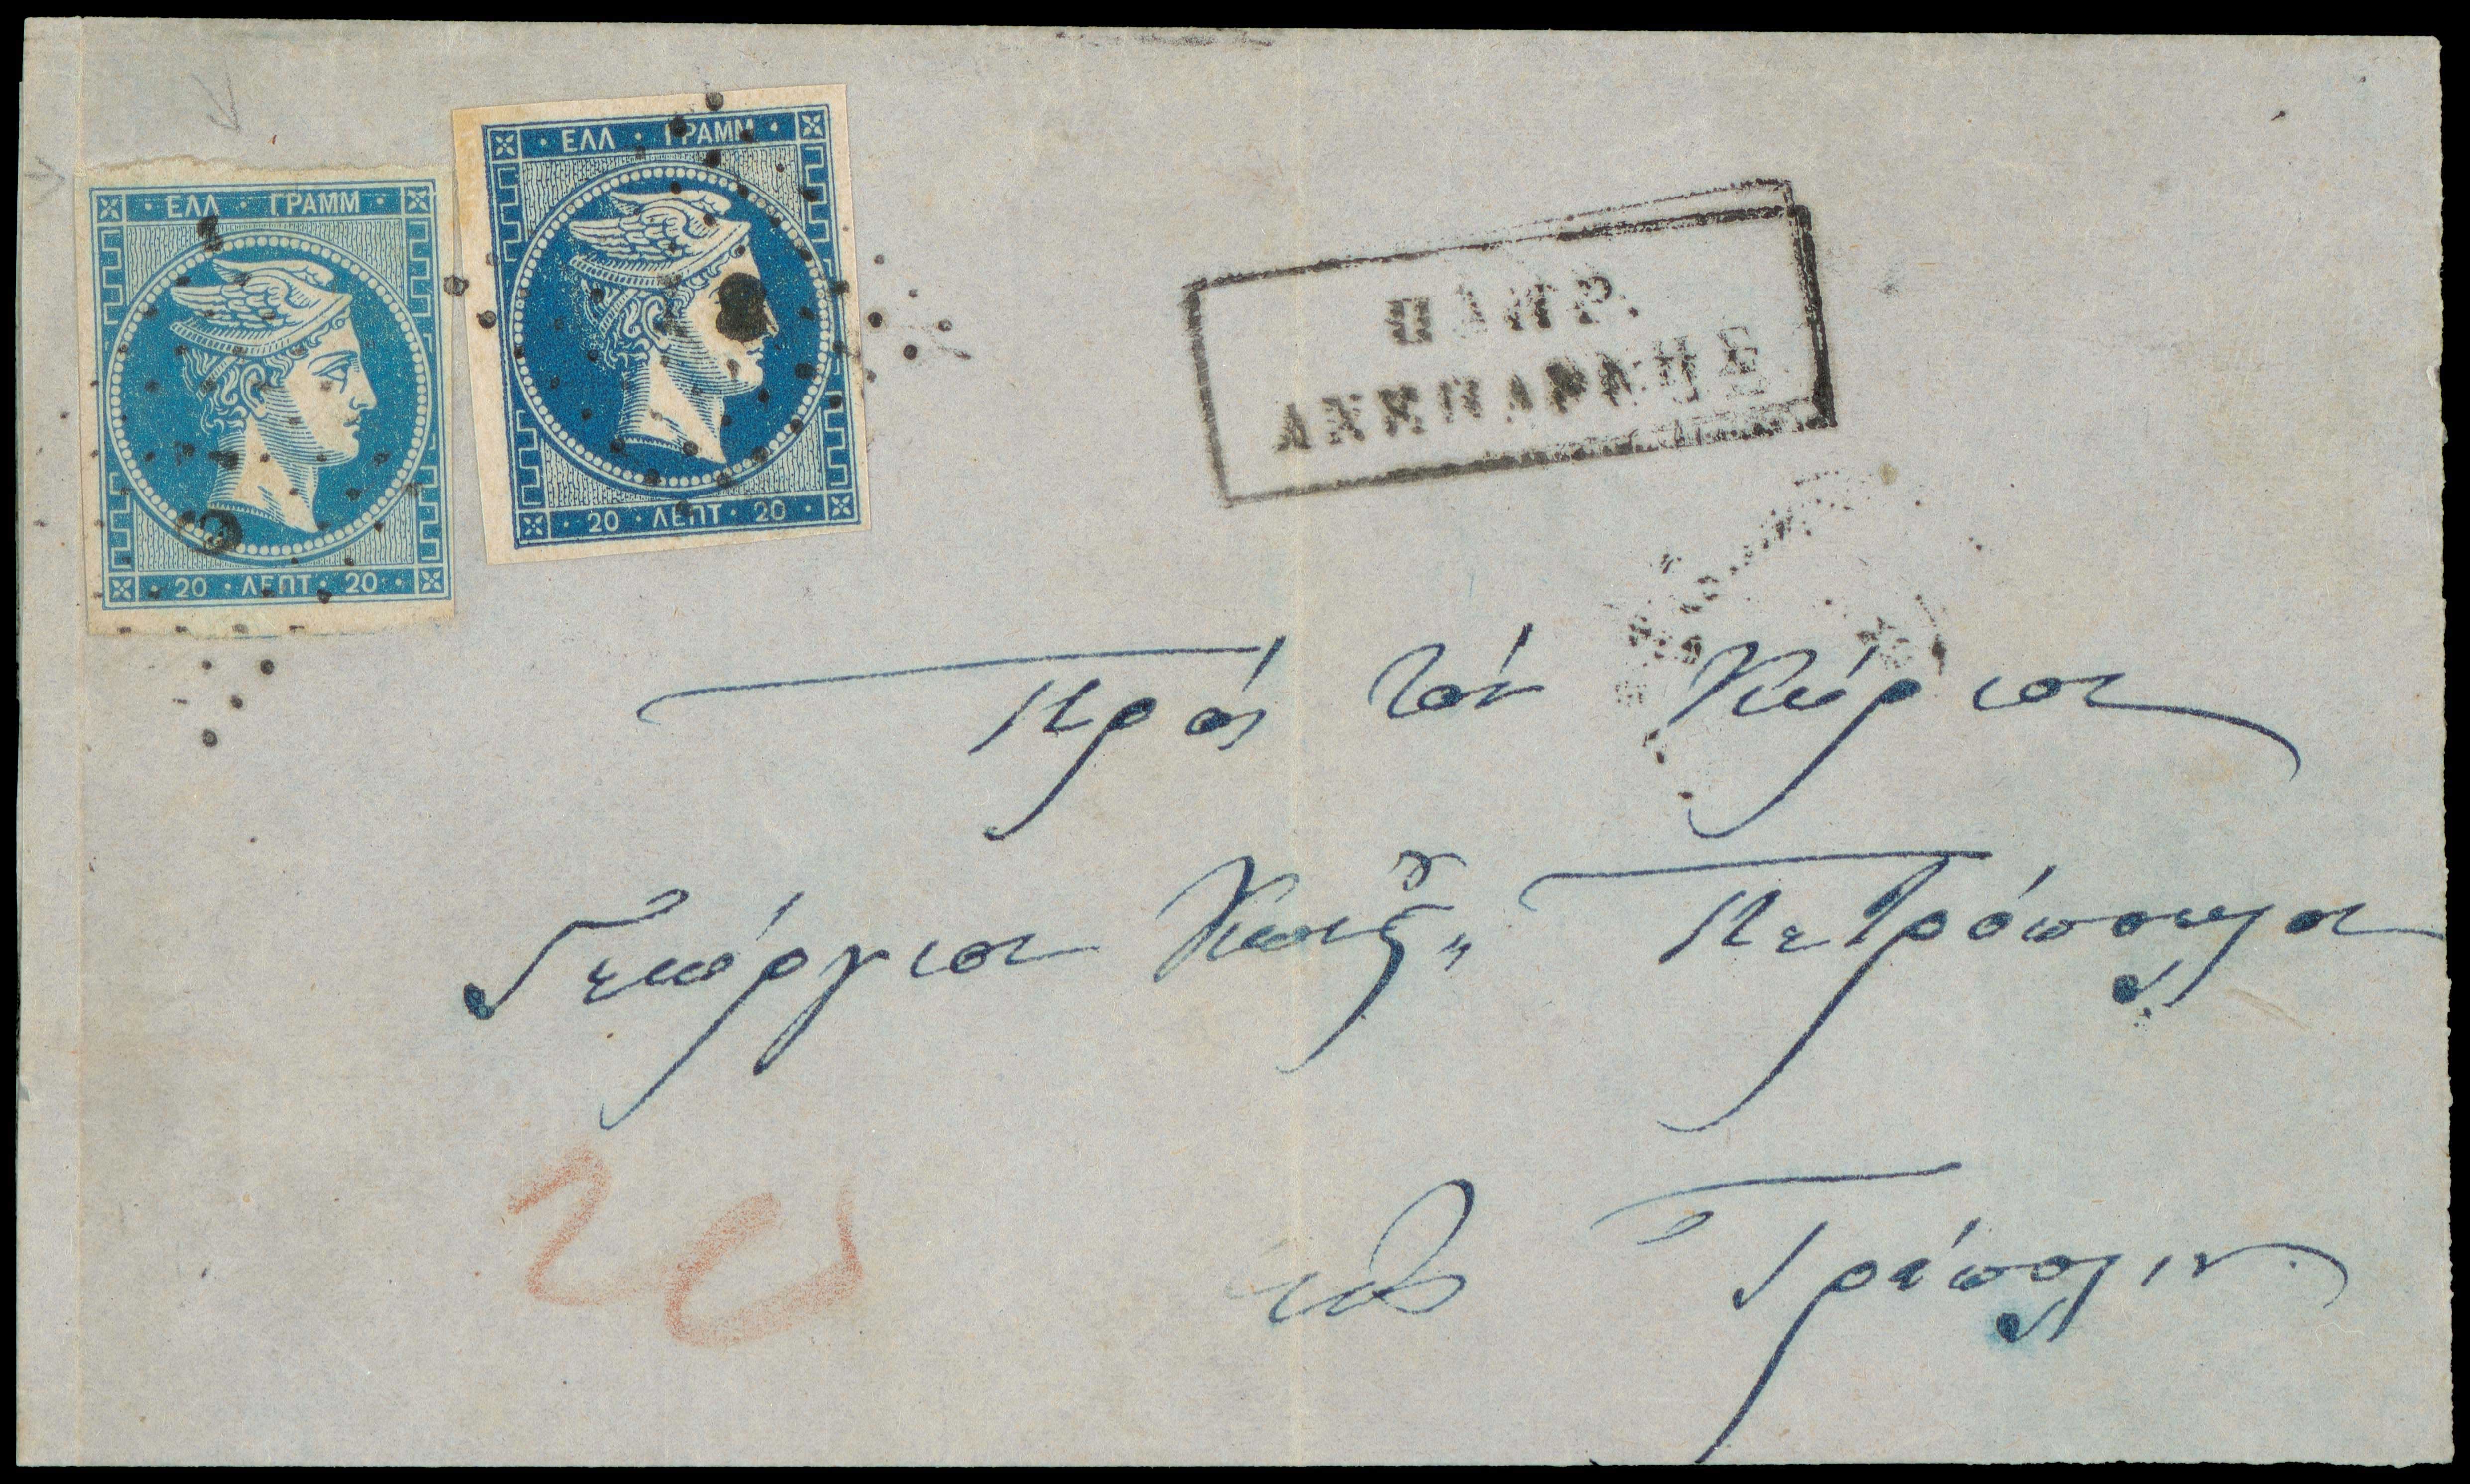 ΕΛΛ · ΓΡΑΜΜ ·
20 · ΛΕΠΤ · 20
ΕΛΛ · ΓΡΑΜΜ ·
20 · ΛΕΠΤ · 20
ΠΛΗΡ.
ΑΝΕΠΑΡΚΗΣ
Πρὸς τὸν Κύριον
Γεώργιον Πετρόπουλον
20
εἰς Τρίπολιν